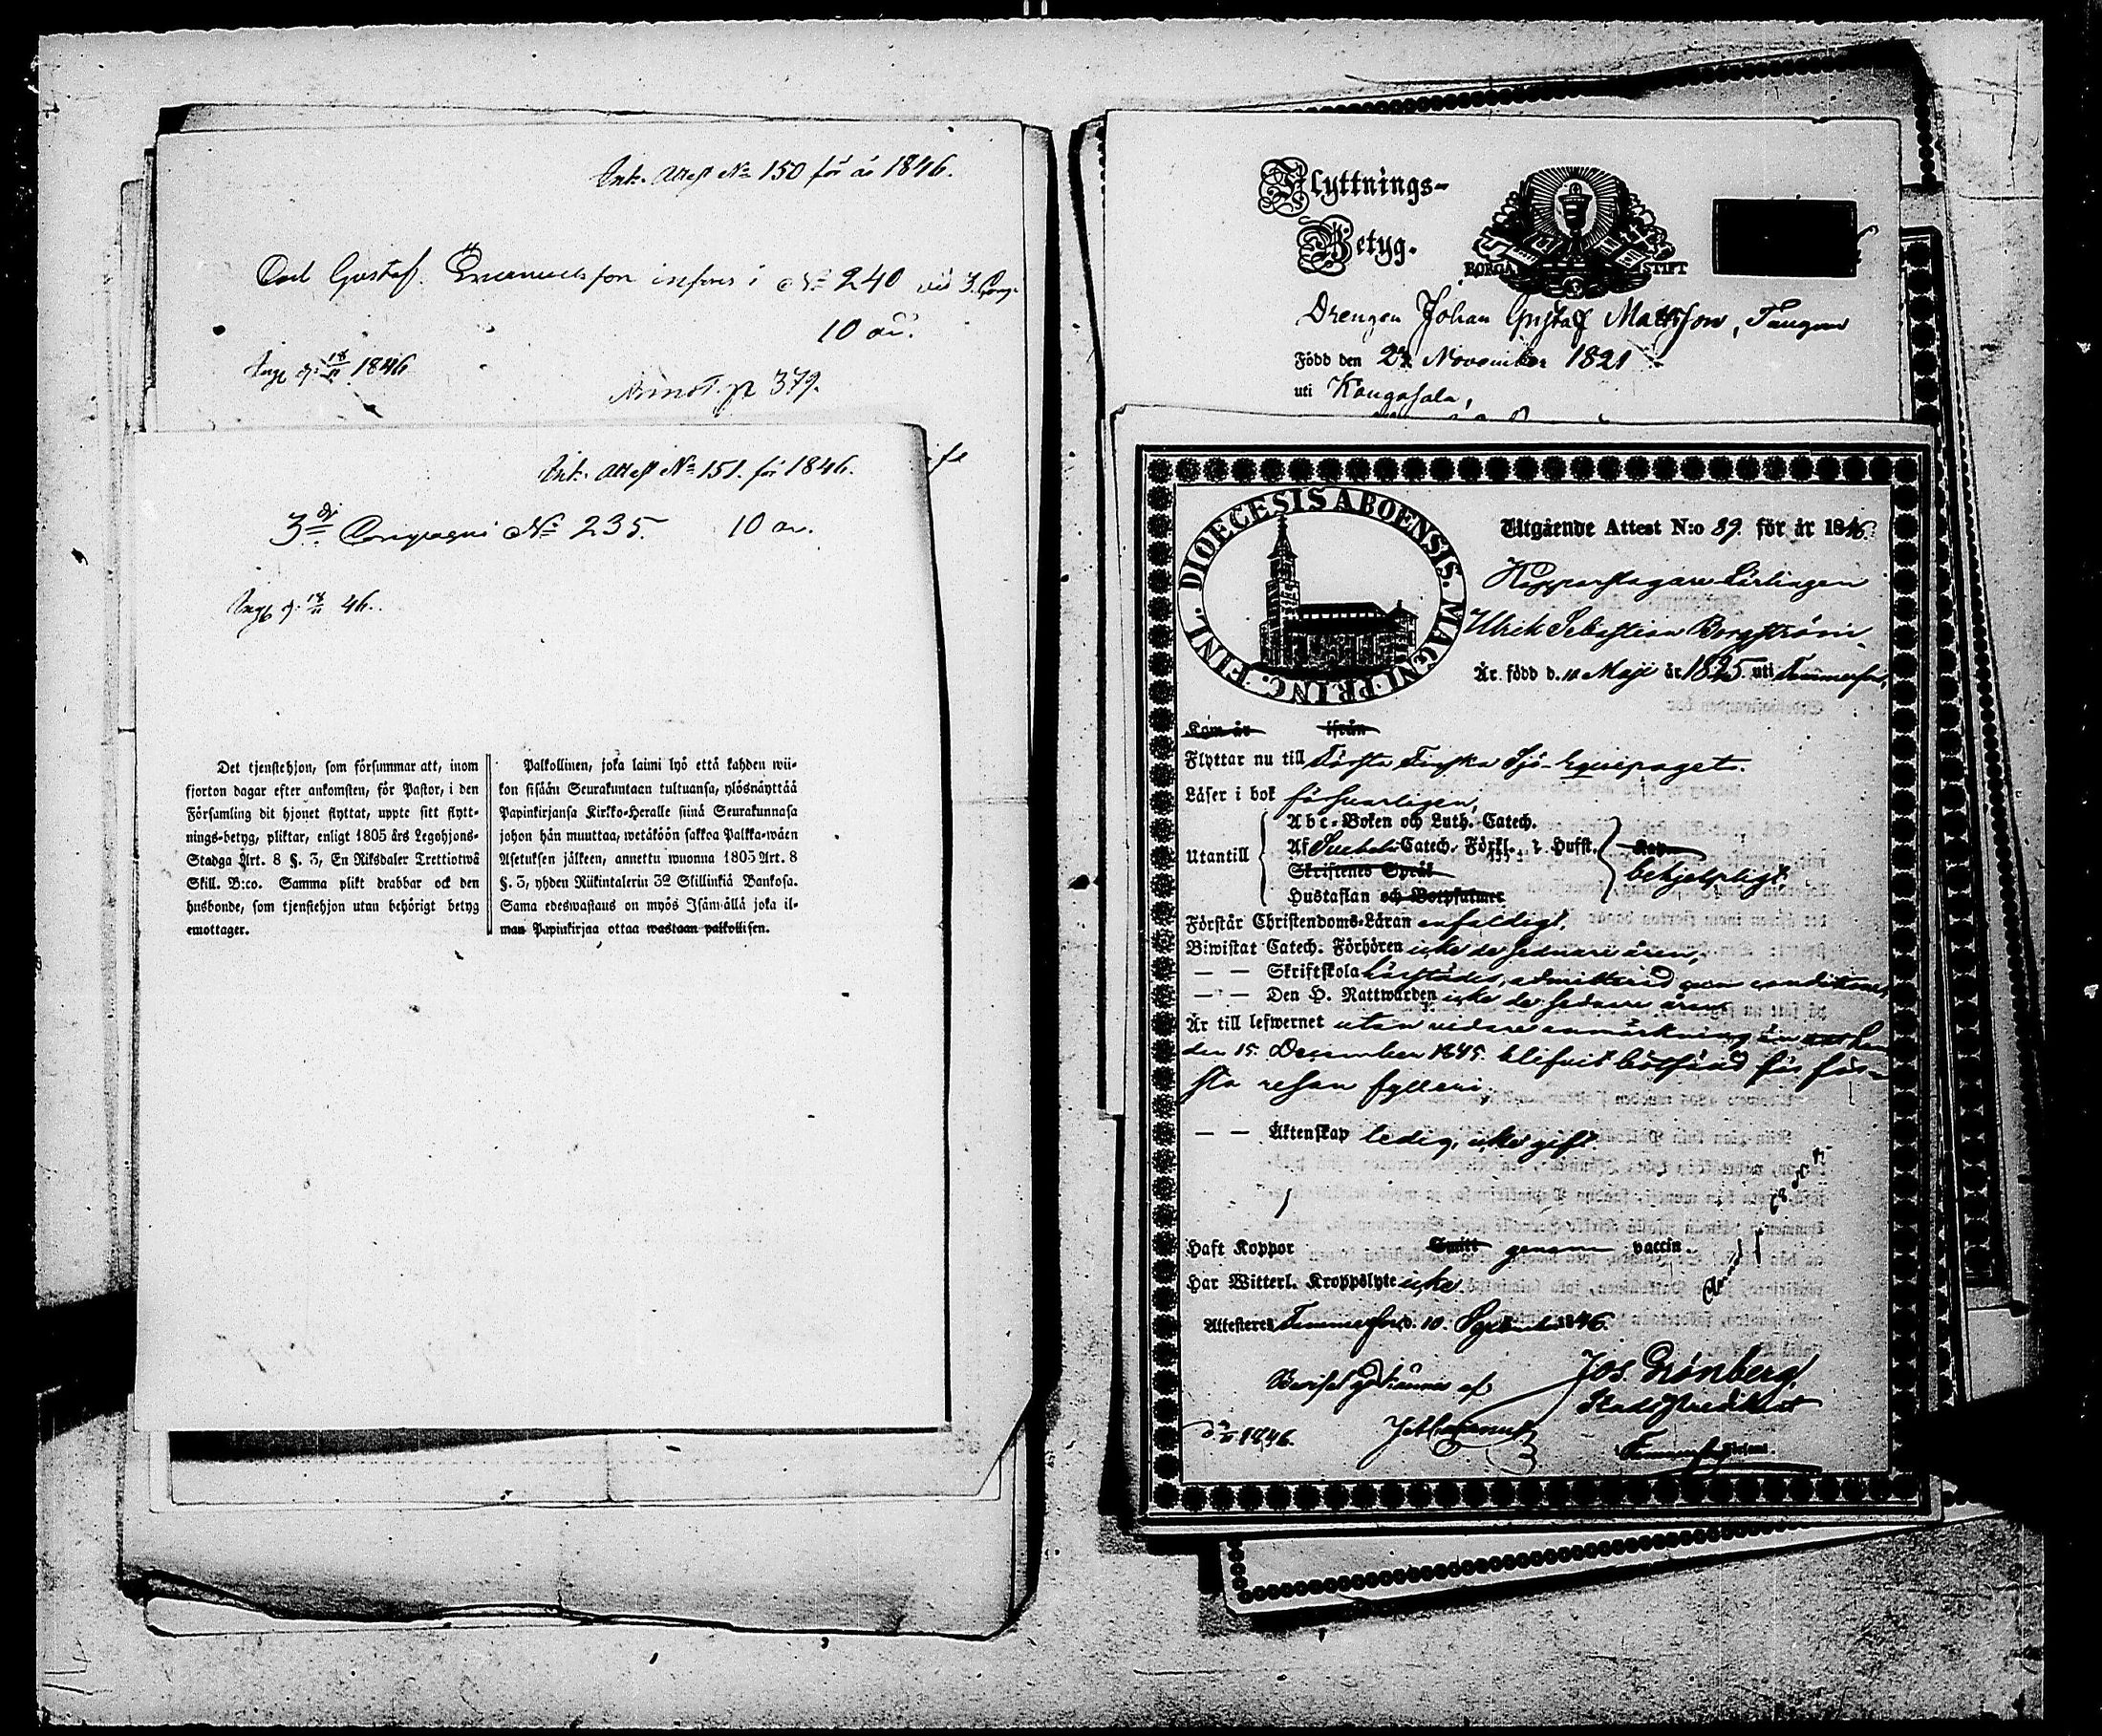 Ink. Attest No 150 för år 1846.
Carl Gustaf Emanuelsson införes i No 240 vid 3. Comp.
10 år.
Ingt d. 18/11 1846
Annot. p 379.
Ink. Attest No 151. för 1846.
3dje Compagni No 235. 10 år.
Ingt d. 18/11 46.
Det tjenstehjon, som försummar att, inom
fjorton dagar efter ankomsten, för Pastor, i den
Församling dit hjonet flyttat, uppte sitt flytt-
nings-betyg, pliktar, enligt 1805 års Legohjons-
Stadga Art. 8 §. 3, En Riksdaler Trettiotwå
Skill. B:co. Samma plikt drabbar ock den
husbonde, som tjenstehjon utan behörigt betyg
emottager.
Palkollinen, joka laimi lyö että kahden wii-
kon sisään Seurakuntaan tultuansa, ylösnäyttää
Papinkirjansa Kirkko-Heralle siinä Seurakunnasa
johon hän muuttaa, wetäköön sakkoa Palkka-wäen
Asetuksen jälkeen, annettu wuonna 1805 Art. 8
§. 3, yhden Riikintalerin 32 Skillinkiä Bankosa.
Sama edeswastaus on myös Isännällä joka il-
man Papinkirjaa ottaa wastaan palkollisen.
Flyttnings-
Betyg.
BORGA STIFT
Drengen Johan Gustaf Mattsson,
Född den 22 November 1821
uti Kangasala,
DIOECESIS ABOENSIS. MAGNI PRINC. FINL.
Utgående Attest N:o 89. för år 1846.
Kopparslagare Lärlingen
Ulrik Sebastian Borgström
Är född d. 11 Maji år 1825 uti Tammerfors,
Kom år ifrån
Flyttar nu till Första Finska Sjö-Equipaget.
Läser i bok försvarligen,
Abc-Boken och Luth. Catech.
Utantill Af Svebeli Catech. Förkl. t. Hufst.
Skriftenes Språk behjelpligt
Hustaflan och Botpsalmer
Förstår Christendoms-Läran enfaldigt,
Biwistat Catech. Förhören icke de sednare åren,
— — Skriftskola härstädes, admitterad
— — Den H. Nattwarden icke de sednare åren
Är till lefwernet utan vidare anmärkning än
den 15. December 1845. blifvit bötfäld för för-
sta resan fylleri,
— — Äktenskap ledig, icke gift.
Haft Koppor Smitt genom vaccin.
Har Witterl. Kroppslyte icke
Attesterar Tammerfors d. 10. September 1846.
Jos Grönberg
1846.